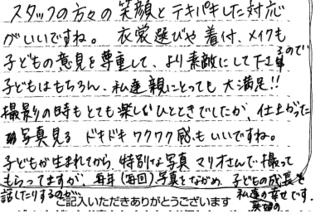 スタッフの方々の笑顔とテキパキした対応
がいいですね。衣裳選びや着付、メイクも
子どもの意見を尊重して、より素敵にして下さるので
子どもはもちろん、私達親にとっても大満足!!
撮影の時もとても楽しいひとときでしたが、仕上がった
写真見るドキドキワクワク感もいいですね。
子どもが生まれてから、特別な写真マリオさんで撮って
もらってますが、毎年(毎回)写真をながめ、子どもの成長を
話したりするのが、私達の幸せです。
ご記入いただきありがとうございます